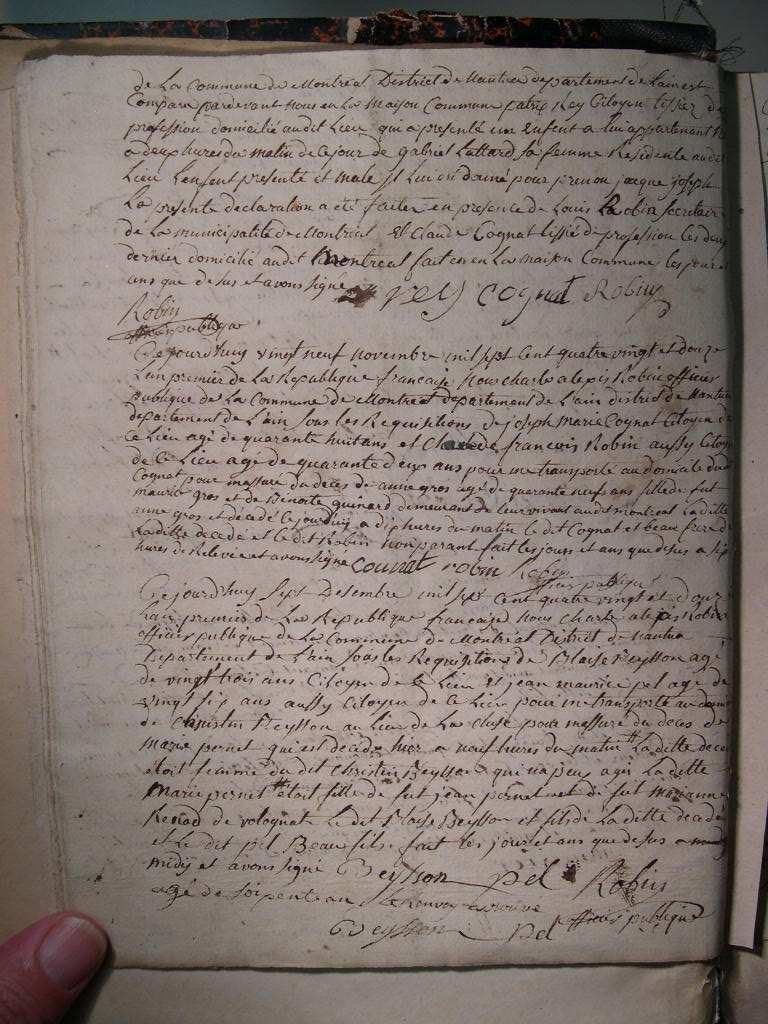 de La Commune de Montreal District de Nantua departement de Lain est
Comparu pardevant nous en La Maison Commune patrix Rey Citoyen tissier de
profession domicilié audit Lieu qui a presenté un Enfent a lui appartenant né
a deux hures du matin de ce jour de gabriel Luttard sa femme Residente audit
Lieu Lenfant presenté et male Il Lui on donné pour prenon jacque joseph
La presente declaration a été faitte en presence de Louis Robin secretair
de La municipalité de Montreal et Claude Cognat tissié de profession Les deux
dernier domicilié audit Montreal fait en La maison Commune Les jour et
ans que desus et avons signé Rey Cognat Robin
Robin
officier publique
Ce jourdhuy vingt neuf novembre mil sept Cent quatre vingt et douze
Lan premier de La Republique francaise Nous charle alepis Robin officier
publique de La Commune de Montreal departement de L'ain district de Nantua
departement de L'ain sous Les Requisitions de joseph Marie Cognat Citoyen de
Ce Lieu agé de quarante huit ans et francois Robin aussy Citoyen
de Ce Lieu agé de quarante deux ans pour me transporte au domicile dudit
Cognat pour massure du deces de anne gros agé de quarante neuf ans fille de fut
maurice gros et de Benoite guinard demeurant de leur vivant audit montreal La ditte
anne gros et décédé Ce jourdhuy a dix hures du matin le dit Cognat et beau frere de
La ditte decedé et le dit Robin non parant fait Les jours et ans que desus a six
hures de Relevée et avons signé Cognat robin Robin
officier publique
Ce jourdhuy Sept Desembre mil sept Cent quatre vingt et douze
Lan premier de La Republique francaise Nous Charle alepis Robin
officier publique de La Commune de Montreal District de Nantua
Departement de L'ain sous Les Requisitions de Blaise Beysson agé
de vingt trois ans Citoyen de Ce Lieu et jean maurice pel agé de
vingt six ans aussy Citoyen de Ce Lieu pour me transporte au domicile
de Christin Beysson au Lieu de La Cluse pour massure du deces de
Marie pernet qui est décédé hier a neuf hures du matin La ditte decedé
étoit femme du dit Christin Beysson qui na peu agi La ditte
Marie pernet étoit fille de fut jean pernet et de fut Marianne
Renod de volognat Le dit Blaise Beysson et fils de La ditte decedé
et Le dit pel Beau fils fait Les jour et ans que desus a
midy et avons signé Beysson pel Robin
agé de soixente an le Renvoy approuvé officier publique
Beysson pel